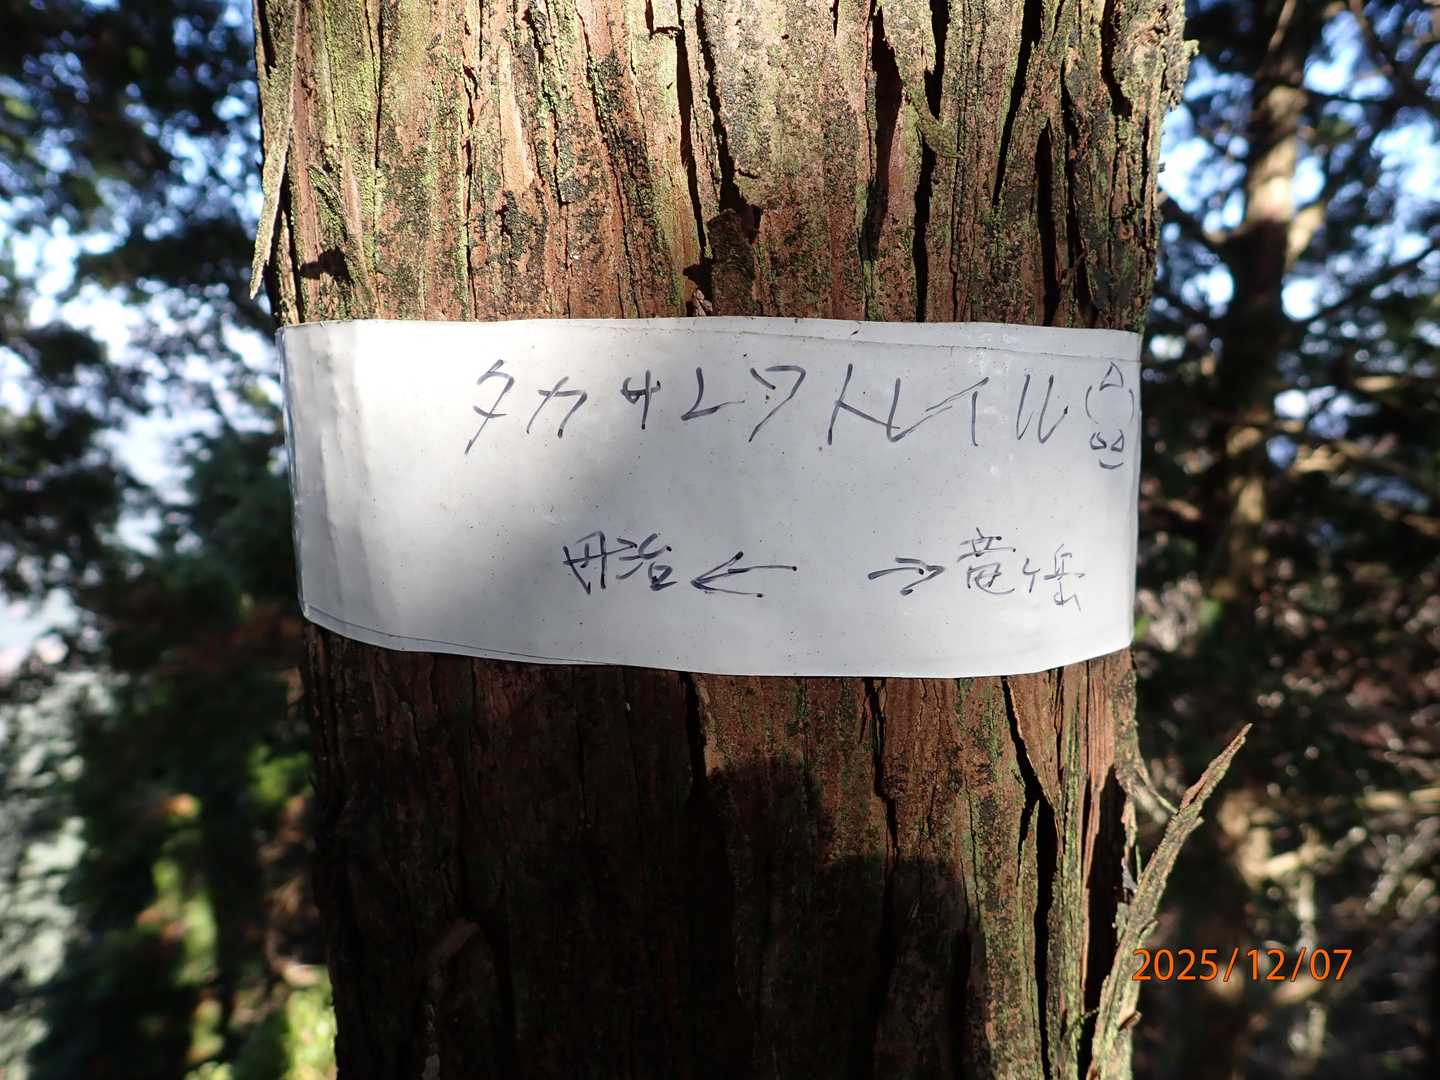 タカサレアトレイル
丹治 ← → 竜ヶ岳
2025/12/07